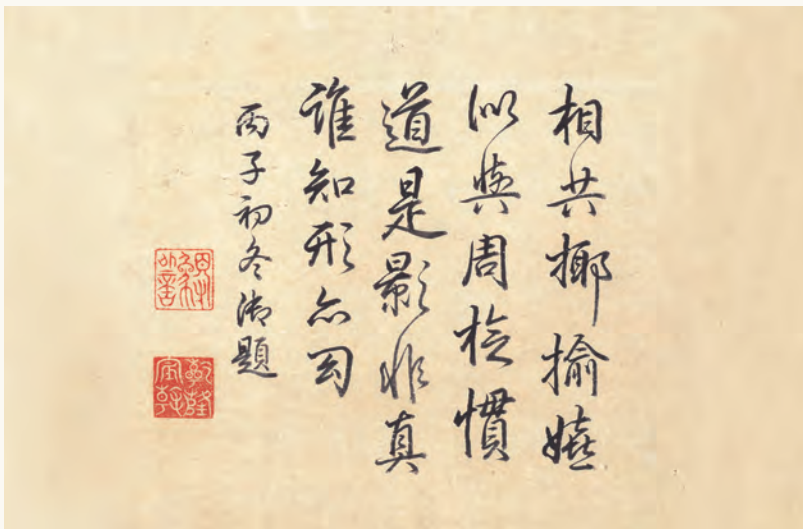 相共揶揄嬉
似與周旋慣
道是影非真
誰知形亦幻
丙子初冬御題
乾隆宸翰